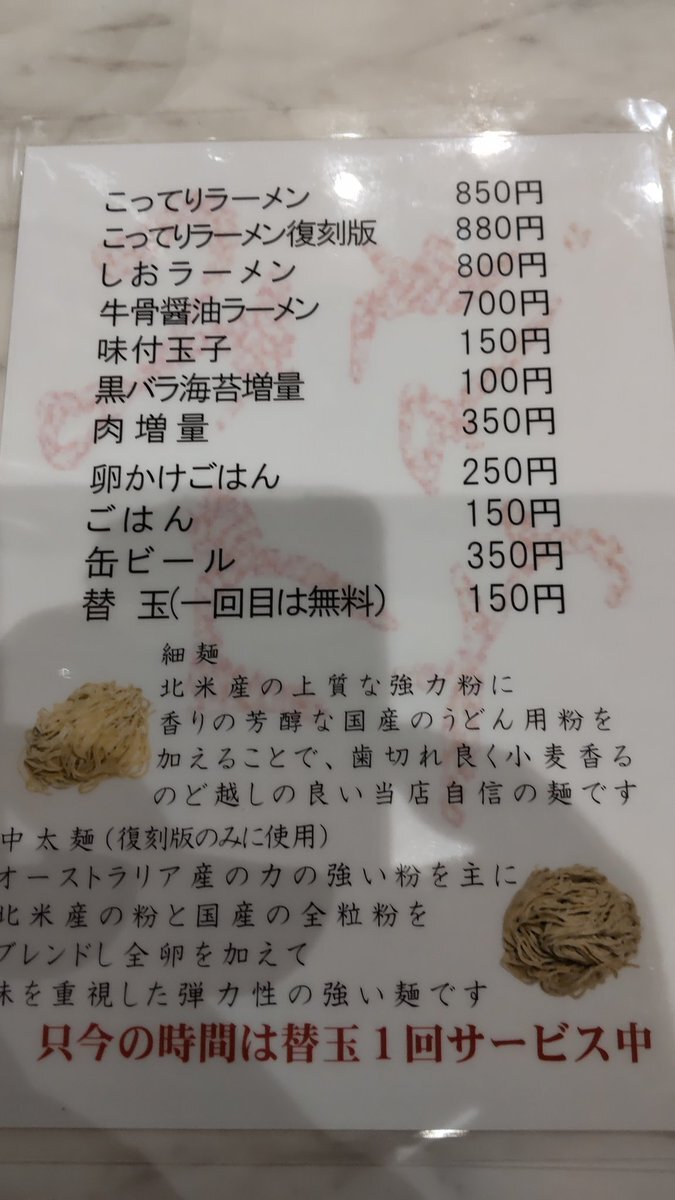 こってりラーメン 850円
こってりラーメン復刻版 880円
しおラーメン 800円
牛骨醤油ラーメン 700円
味付玉子 150円
黒バラ海苔増量 100円
肉増量 350円
卵かけごはん 250円
ごはん 150円
缶ビール 350円
替 玉(一回目は無料) 150円
細麺
北米産の上質な強力粉に
香りの芳醇な国産のうどん用粉を
加えることで、歯切れ良く小麦香る
のど越しの良い当店自信の麺です
中太麺(復刻版のみに使用)
オーストラリア産の力の強い粉を主に
北米産の粉と国産の全粒粉を
ブレンドし全卵を加えて
味を重視した弾力性の強い麺です
只今の時間は替玉1回サービス中